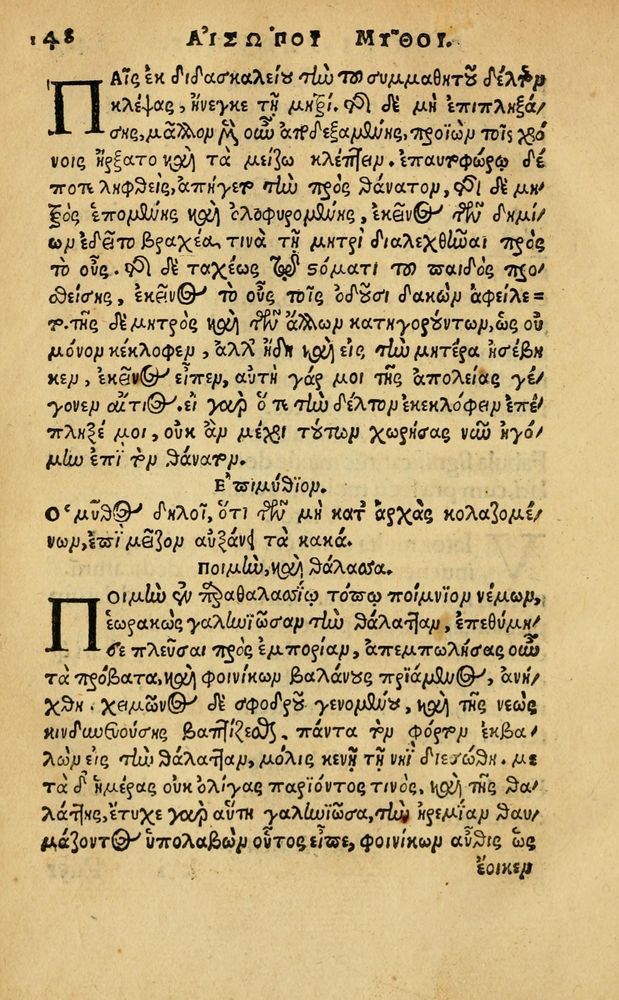 148 ΑἸΣΩΠΟΥ ΜΥ͂ΘΟΙ.
ΠΑῖς ἐκ διδασκαλείου τὴν τοῦ συμμαθητοῦ δέλτον
κλέψας, ἤνεγκε τῇ μητρί. τῆς δὲ μὴ ἐπιπληξά-
σης, μᾶλλον μὲν οὖν ἀποδεξαμένης, προϊὼν τοῖς χρό-
νοις ἤρξατο καὶ τὰ μείζω κλέπτειν. ἐπαυτοφώρῳ δέ
ποτε ληφθεὶς, ἀπήγετο τὴν πρὸς θάνατον, τῆς δὲ μη-
τρὸς ἑπομένης καὶ ὀλοφυρομένης, ἐκεῖνος τῶν δημί-
ων ἐδεῖτο βραχέα τινὰ τῇ μητρὶ διαλεχθῆναι πρὸς
τὸ οὖς. τῆς δὲ ταχέως τῷ στόματι τοῦ παιδὸς προ-
θείσης, ἐκεῖνος τὸ οὖς τοῖς ὀδοῦσι δακὼν ἀφείλε=
το. τῆς δὲ μητρὸς καὶ τῶν ἄλλων κατηγορούντων, ὡς οὐ
μόνον κέκλοφεν, ἀλλ' ἤδη καὶ εἰς τὴν μητέρα ἠσέβη-
κεν, ἐκεῖνος εἶπεν, αὐτὴ γάρ μοι τῆς ἀπολείας γέ-
γονεν αἴτιος. εἰ γὰρ ὅτε τὴν δέλτον ἐκεκλόφειν ἐπέ-
πληξέ μοι, οὐκ ἂν μέχρι τούτων χωρήσας νῦν ἠγό-
μην ἐπὶ τὸν θάνατον.
Ἐπιμύθιον.
Ὁ μῦθος δηλοῖ, ὅτι τῶν μὴ κατ' ἀρχὰς κολαζομέ-
νων, ἐπὶ μεῖζον αὐξάνει τὰ κακά.
Ποιμὴν, καὶ θάλασσα.
ΠΟιμὴν ἐν παραθαλασσίῳ τόπῳ ποίμνιον νέμων,
ἑωρακὼς γαληνιῶσαν τὴν θάλατταν, ἐπεθύμη-
σε πλεῦσαι πρὸς ἐμπορίαν, ἀπεμπωλήσας οὖν
τὰ πρόβατα, καὶ φοινίκων βαλάνους πριάμενος, ἀνή-
χθη. χειμῶνος δὲ σφοδροῦ γενομένου, καὶ τῆς νεὼς
κινδυνευούσης βαπτίζεσθαι, πάντα τὸν φόρτον ἐκβα-
λὼν εἰς τὴν θάλατταν, μόλις κενῇ τῇ νηῒ διεσώθη. με
τὰ δ' ἡμέρας οὐκ ὀλίγας παριόντος τινὸς, καὶ τῆς θα-
λάττης, ἔτυχε γὰρ αὕτη γαληνιῶσα, τὴν ἠρεμίαν θαυ-
μάζοντος ὑπολαβὼν οὗτος εἶπε, φοινίκων αὖθις ὡς
ἔοικεν